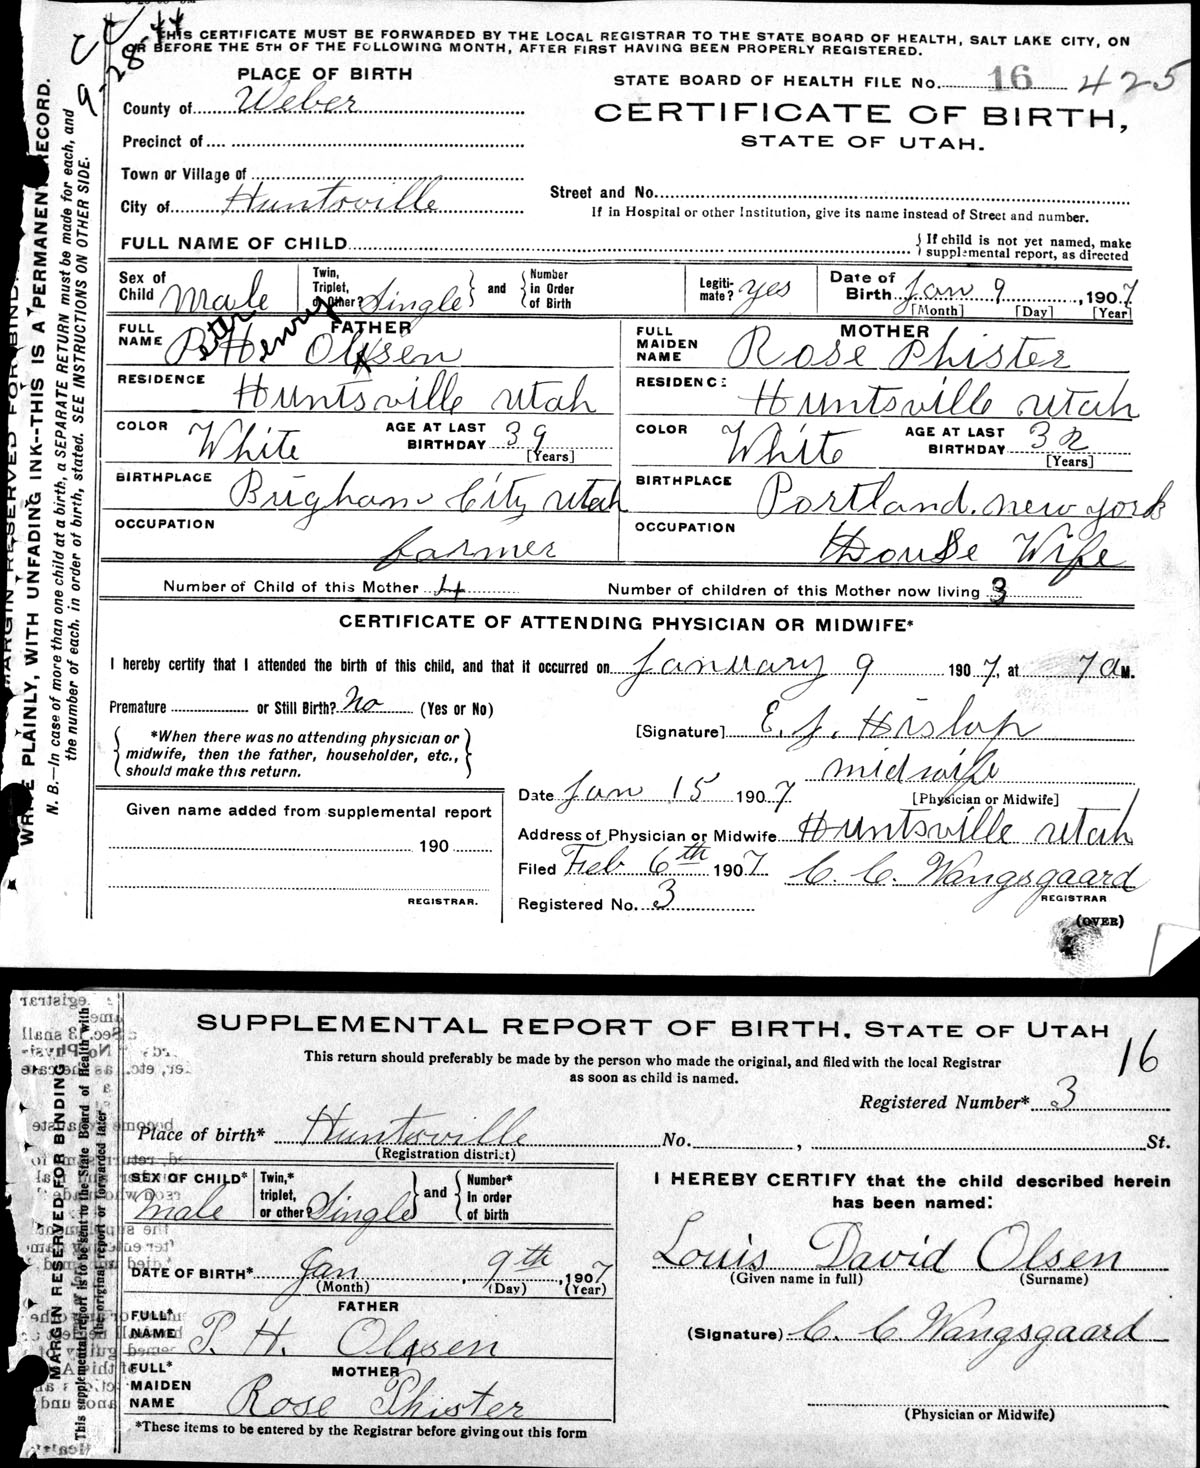 THIS CERTIFICATE MUST BE FORWARDED BY THE LOCAL REGISTRAR TO THE STATE BOARD OF HEALTH, SALT LAKE CITY, ON
OR BEFORE THE 5TH OF THE FOLLOWING MONTH, AFTER FIRST HAVING BEEN PROPERLY REGISTERED.
9-28-44
PLACE OF BIRTH
STATE BOARD OF HEALTH FILE No. 16 425
County of Weber
CERTIFICATE OF BIRTH,
STATE OF UTAH.
Precinct of
Town or Village of
City of Huntsville
Street and No.
If in Hospital or other Institution, give its name instead of Street and number.
FULL NAME OF CHILD
If child is not yet named, make
supplemental report, as directed
Sex of Child Male
Twin, Triplet, or Other? Single and Number in Order of Birth
Legitimate? yes
Date of Birth Jan 9, 1907
[Month] [Day] [Year]
FATHER
FULL NAME Peter Henry Olsen
MOTHER
FULL MAIDEN NAME Rose Phister
RESIDENCE Huntsville Utah
RESIDENCE Huntsville Utah
COLOR White AGE AT LAST BIRTHDAY 39 [Years]
COLOR White AGE AT LAST BIRTHDAY 32 [Years]
BIRTHPLACE Brigham City Utah
BIRTHPLACE Portland. New York
OCCUPATION farmer
OCCUPATION House Wife
Number of Child of this Mother 4 Number of children of this Mother now living 3
CERTIFICATE OF ATTENDING PHYSICIAN OR MIDWIFE*
I hereby certify that I attended the birth of this child, and that it occurred on January 9 1907, at 7 a M.
Premature or Still Birth? No (Yes or No)
[Signature] E. J. Hislop
*When there was no attending physician or
midwife, then the father, householder, etc.,
should make this return.
midwife
[Physician or Midwife]
Date Jan 15 1907
Given name added from supplemental report
190
REGISTRAR.
Address of Physician or Midwife Huntsville Utah
Filed Feb 6th 1907 C. C. Wangsgaard
REGISTRAR
Registered No. 3
(OVER)
WRITE PLAINLY, WITH UNFADING INK--THIS IS A PERMANENT RECORD.
N. B.—In case of more than one child at a birth, a SEPARATE RETURN must be made for each, and
the number of each, in order of birth, stated. SEE INSTRUCTIONS ON OTHER SIDE.
SUPPLEMENTAL REPORT OF BIRTH, STATE OF UTAH
16
This return should preferably be made by the person who made the original, and filed with the local Registrar
as soon as child is named.
Registered Number* 3
Place of birth* Huntsville No. , St.
(Registration district)
SEX OF CHILD* Male
Twin,* triplet, or other? Single and Number* in order of birth
I HEREBY CERTIFY that the child described herein
has been named:
Louis David Olsen
(Given name in full) (Surname)
DATE OF BIRTH* Jan, 9th, 1907
(Month) (Day) (Year)
FATHER
FULL* NAME P. H. Olsen
(Signature) C. C. Wangsgaard
MOTHER
FULL* MAIDEN NAME Rose Phister
(Physician or Midwife)
*These items to be entered by the Registrar before giving out this form
MARGIN RESERVED FOR BINDING
This supplemental report is to be sent to the State Board of Health with
the original report or forwarded later